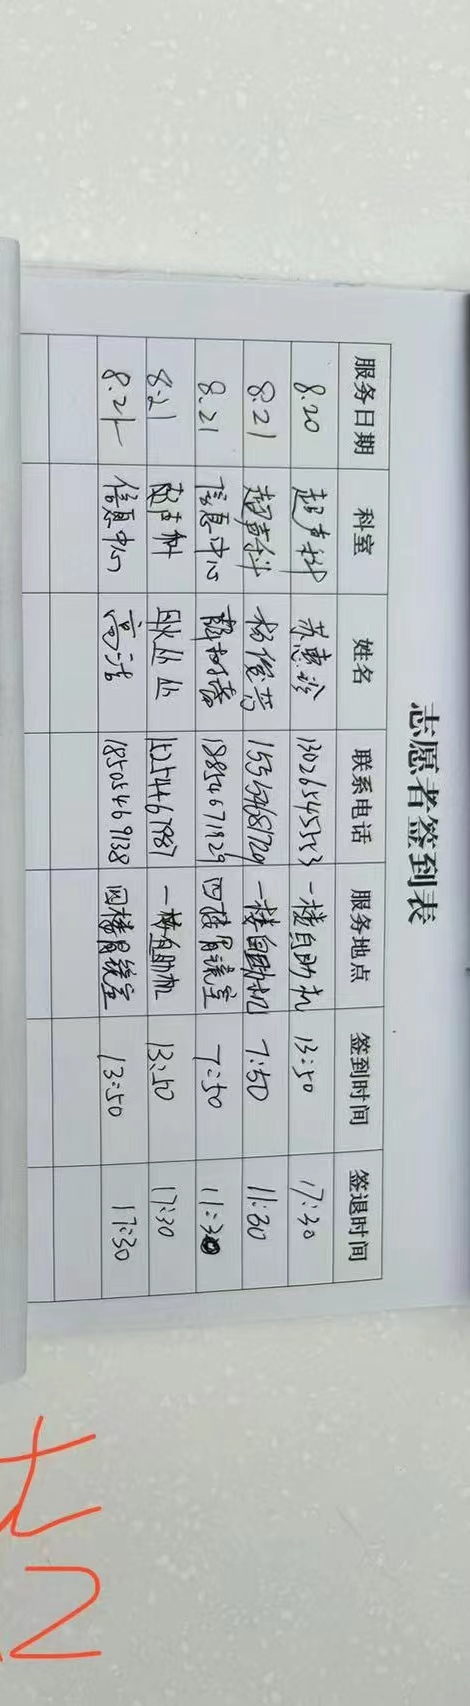 志愿者签到表
服务日期 科室 姓名 联系电话 服务地点 签到时间 签退时间
8.20 超声科 苏惠珍 一楼自助机 13:50 17:30
8.21 超声科 杨俊芳 一楼自助机 7:50 11:30
8.21 信息中心 18854671929 四楼胃镜室 7:50 11:30
8.21 超声科 15254467987 一楼自助机 13:50 17:30
8.21 信息中心 高洁 18505469138 四楼胃镜室 13:50 17:30